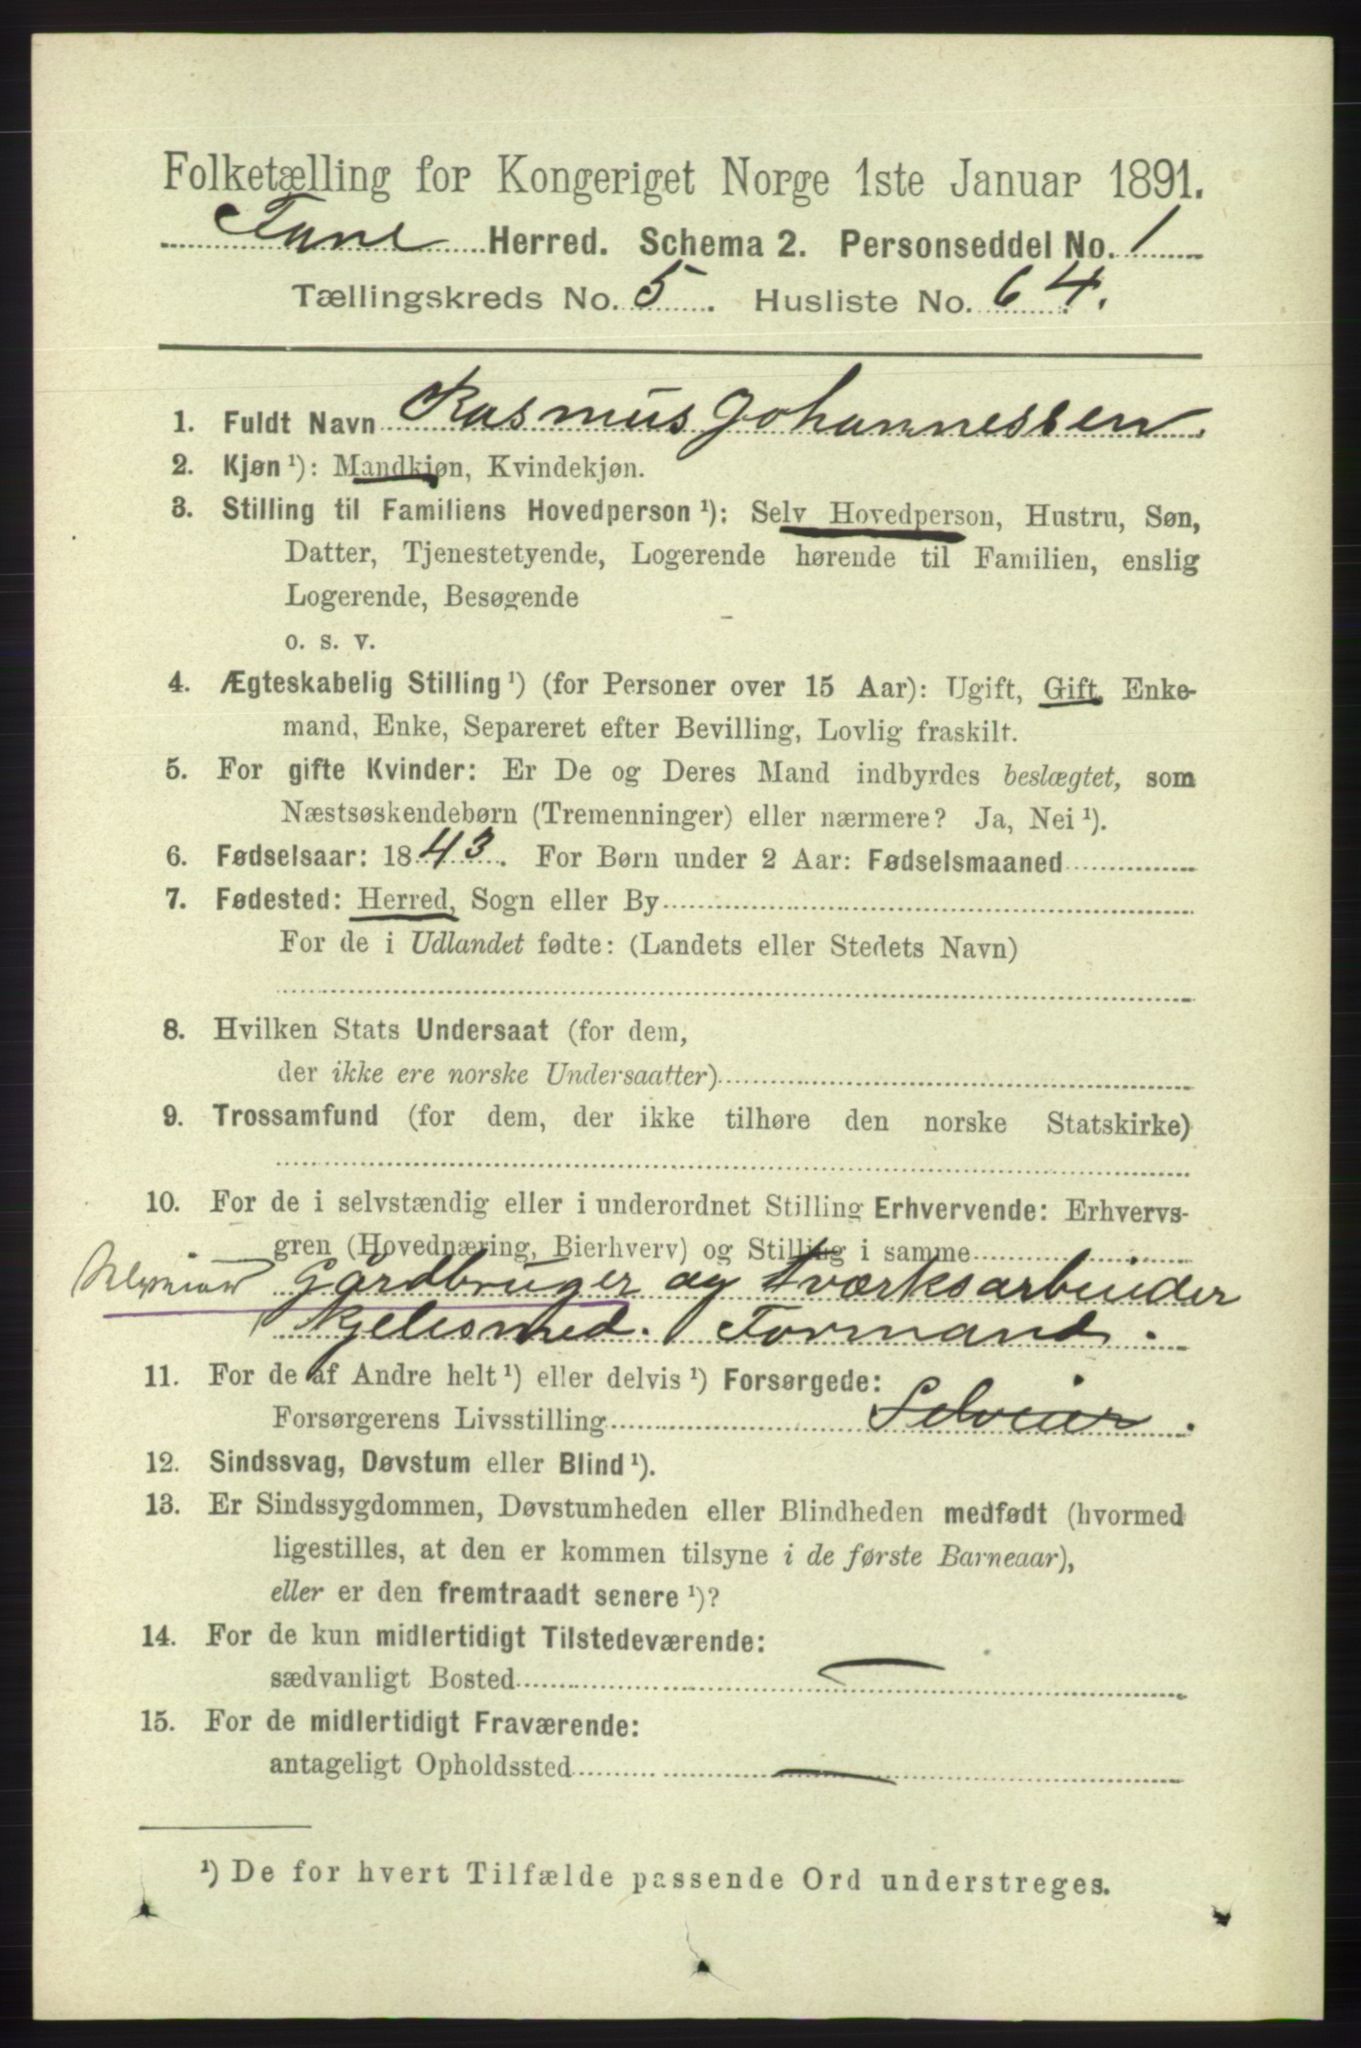 Folketælling for Kongeriget Norge 1ste Januar 1891.
Fane Herred. Schema 2. Personseddel No. 1
Tællingskreds No. 5. Husliste No. 64.
1. Fuldt Navn Rasmus Johannessen.
2. Kjøn ¹): Mandkjøn, Kvindekjøn.
3. Stilling til Familiens Hovedperson ¹): Selv Hovedperson, Hustru, Søn,
Datter, Tjenestetyende, Logerende hørende til Familien, enslig
Logerende, Besøgende
o. s. v.
4. Ægteskabelig Stilling ¹) (for Personer over 15 Aar): Ugift, Gift, Enke-
mand, Enke, Separeret efter Bevilling, Lovlig fraskilt.
5. For gifte Kvinder: Er De og Deres Mand indbyrdes beslægtet, som
Næstsøskendebørn (Tremenninger) eller nærmere? Ja, Nei ¹).
6. Fødselsaar: 1843. For Børn under 2 Aar: Fødselsmaaned
7. Fødested: Herred, Sogn eller By
For de i Udlandet fødte: (Landets eller Stedets Navn)
8. Hvilken Stats Undersaat (for dem,
der ikke ere norske Undersaatter)
9. Trossamfund (for dem, der ikke tilhøre den norske Statskirke)
10. For de i selvstændig eller i underordnet Stilling Erhvervende: Erhvervs-
gren (Hovednæring, Bierhverv) og Stilling i samme
Gårdbruger og værksarbeider
Formand.
11. For de af Andre helt ¹) eller delvis ¹) Forsørgede:
Forsørgerens Livsstilling Selveier.
12. Sindssvag, Døvstum eller Blind ¹).
13. Er Sindssygdommen, Døvstumheden eller Blindheden medfødt (hvormed
ligestilles, at den er kommen tilsyne i de første Barneaar),
eller er den fremtraadt senere ¹)?
14. For de kun midlertidigt Tilstedeværende:
sædvanligt Bosted —
15. For de midlertidigt Fraværende:
antageligt Opholdssted —
¹) De for hvert Tilfælde passende Ord understreges.